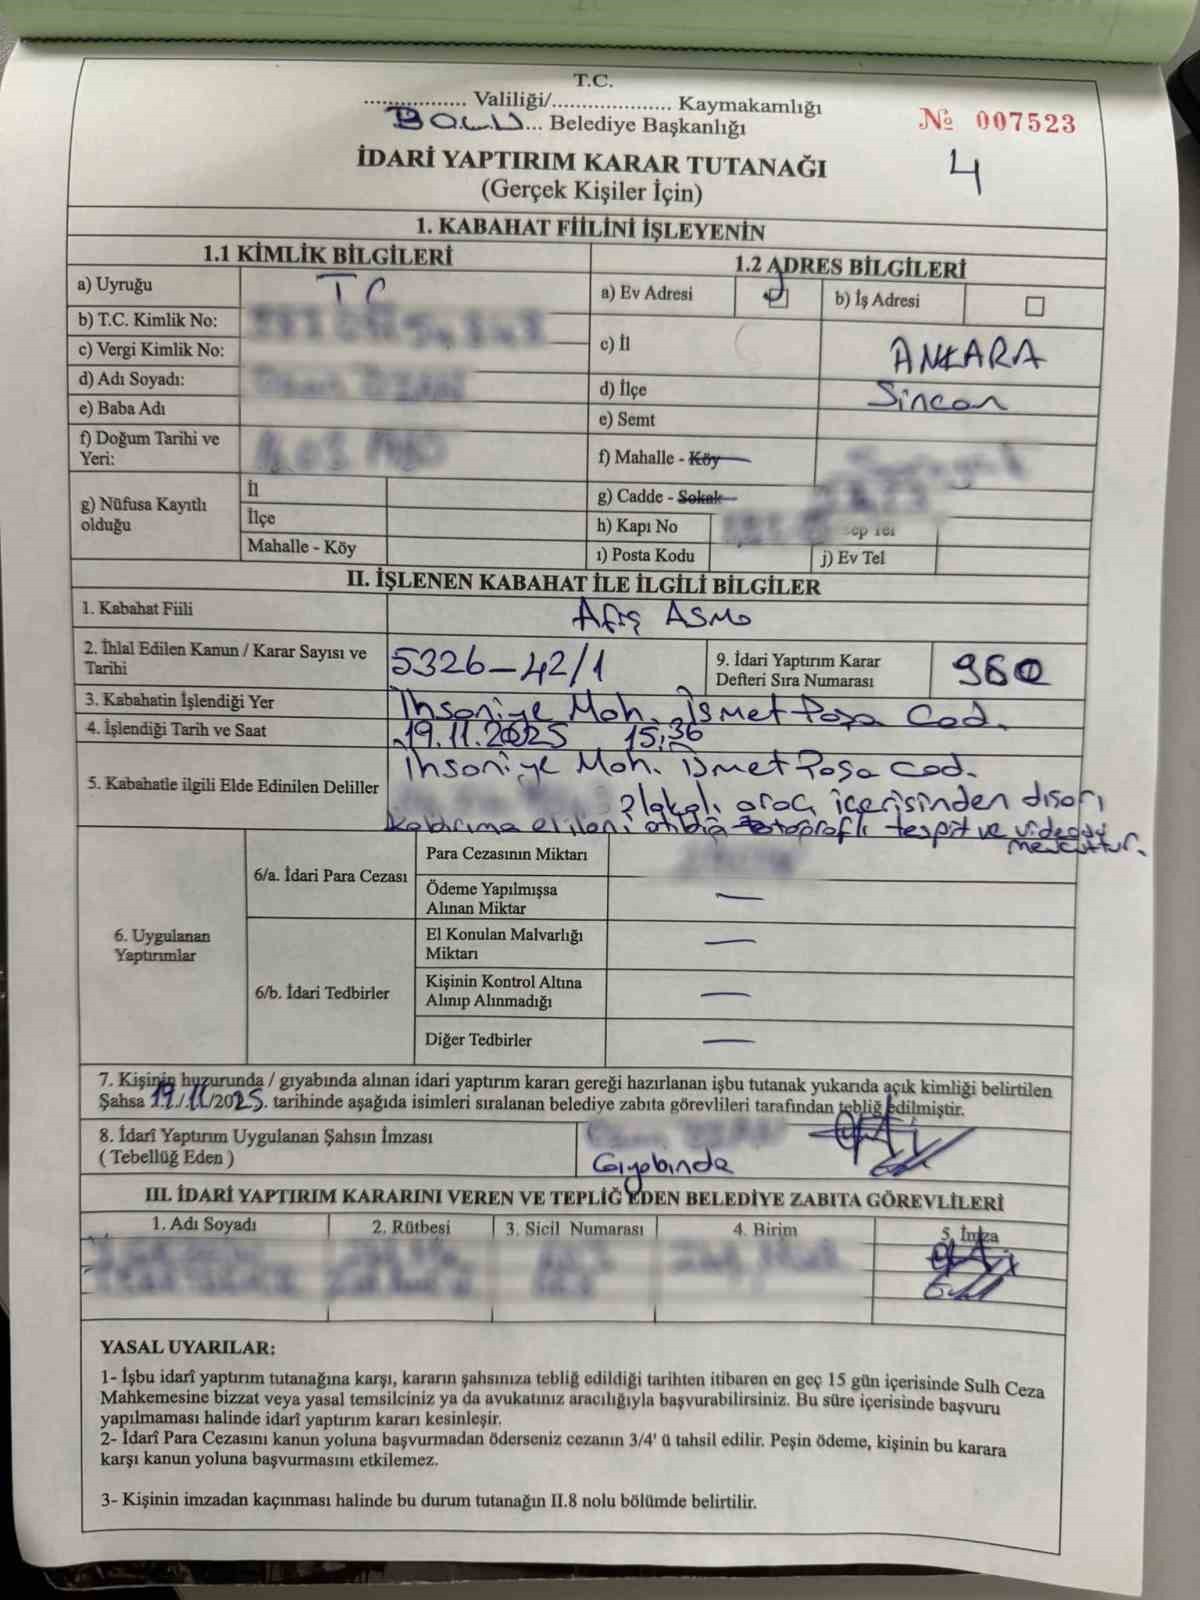 T.C.
................. Valiliği/.................... Kaymakamlığı
BOLU... Belediye Başkanlığı
№ 007523
İDARİ YAPTIRIM KARAR TUTANAĞI
4
(Gerçek Kişiler İçin)
1. KABAHAT FİİLİNİ İŞLEYENİN
1.1 KİMLİK BİLGİLERİ
1.2 ADRES BİLGİLERİ
a) Uyruğu TC
a) Ev Adresi
b) İş Adresi
b) T.C. Kimlik No:
c) Vergi Kimlik No:
c) İl ANKARA
d) Adı Soyadı:
d) İlçe Sincan
e) Baba Adı
e) Semt
f) Doğum Tarihi ve
Yeri:
f) Mahalle - Köy
g) Nüfusa Kayıtlı
olduğu
İl
İlçe
Mahalle - Köy
g) Cadde - Sokak
h) Kapı No
ı) Posta Kodu
j) Ev Tel
II. İŞLENEN KABAHAT İLE İLGİLİ BİLGİLER
1. Kabahat Fiili Afiş ASMa
2. İhlal Edilen Kanun / Karar Sayısı ve
Tarihi
5326-42/1
9. İdari Yaptırım Karar
Defteri Sıra Numarası
960
3. Kabahatin İşlendiği Yer İhsaniye Mah. İsmet Paşa Cad.
4. İşlendiği Tarih ve Saat 19.11.2025 15:36
5. Kabahatle ilgili Elde Edinilen Deliller
İhsaniye Mah. İsmet Paşa Cad.
Plakalı aracı içerisinden dışarı
kaldırıma el ilanı attığı fotoğraflı tespit ve videosu
mevcuttur.
6. Uygulanan
Yaptırımlar
6/a. İdari Para Cezası
Para Cezasının Miktarı
Ödeme Yapılmışsa
Alınan Miktar —
6/b. İdari Tedbirler
El Konulan Malvarlığı
Miktarı —
Kişinin Kontrol Altına
Alınıp Alınmadığı —
Diğer Tedbirler —
7. Kişinin huzurunda / gıyabında alınan idari yaptırım kararı gereği hazırlanan işbu tutanak yukarıda açık kimliği belirtilen
Şahsa 19./11/2025. tarihinde aşağıda isimleri sıralanan belediye zabıta görevlileri tarafından tebliğ edilmiştir.
8. İdarî Yaptırım Uygulanan Şahsın İmzası
( Tebellüğ Eden )
Gıyabında
III. İDARİ YAPTIRIM KARARINI VEREN VE TEPLİĞ EDEN BELEDİYE ZABITA GÖREVLİLERİ
1. Adı Soyadı
2. Rütbesi
3. Sicil Numarası
4. Birim
5. İmza
YASAL UYARILAR:
1- İşbu idarî yaptırım tutanağına karşı, kararın şahsınıza tebliğ edildiği tarihten itibaren en geç 15 gün içerisinde Sulh Ceza
Mahkemesine bizzat veya yasal temsilciniz ya da avukatınız aracılığıyla başvurabilirsiniz. Bu süre içerisinde başvuru
yapılmaması halinde idarî yaptırım kararı kesinleşir.
2- İdarî Para Cezasını kanun yoluna başvurmadan öderseniz cezanın 3/4' ü tahsil edilir. Peşin ödeme, kişinin bu karara
karşı kanun yoluna başvurmasını etkilemez.
3- Kişinin imzadan kaçınması halinde bu durum tutanağın II.8 nolu bölümde belirtilir.